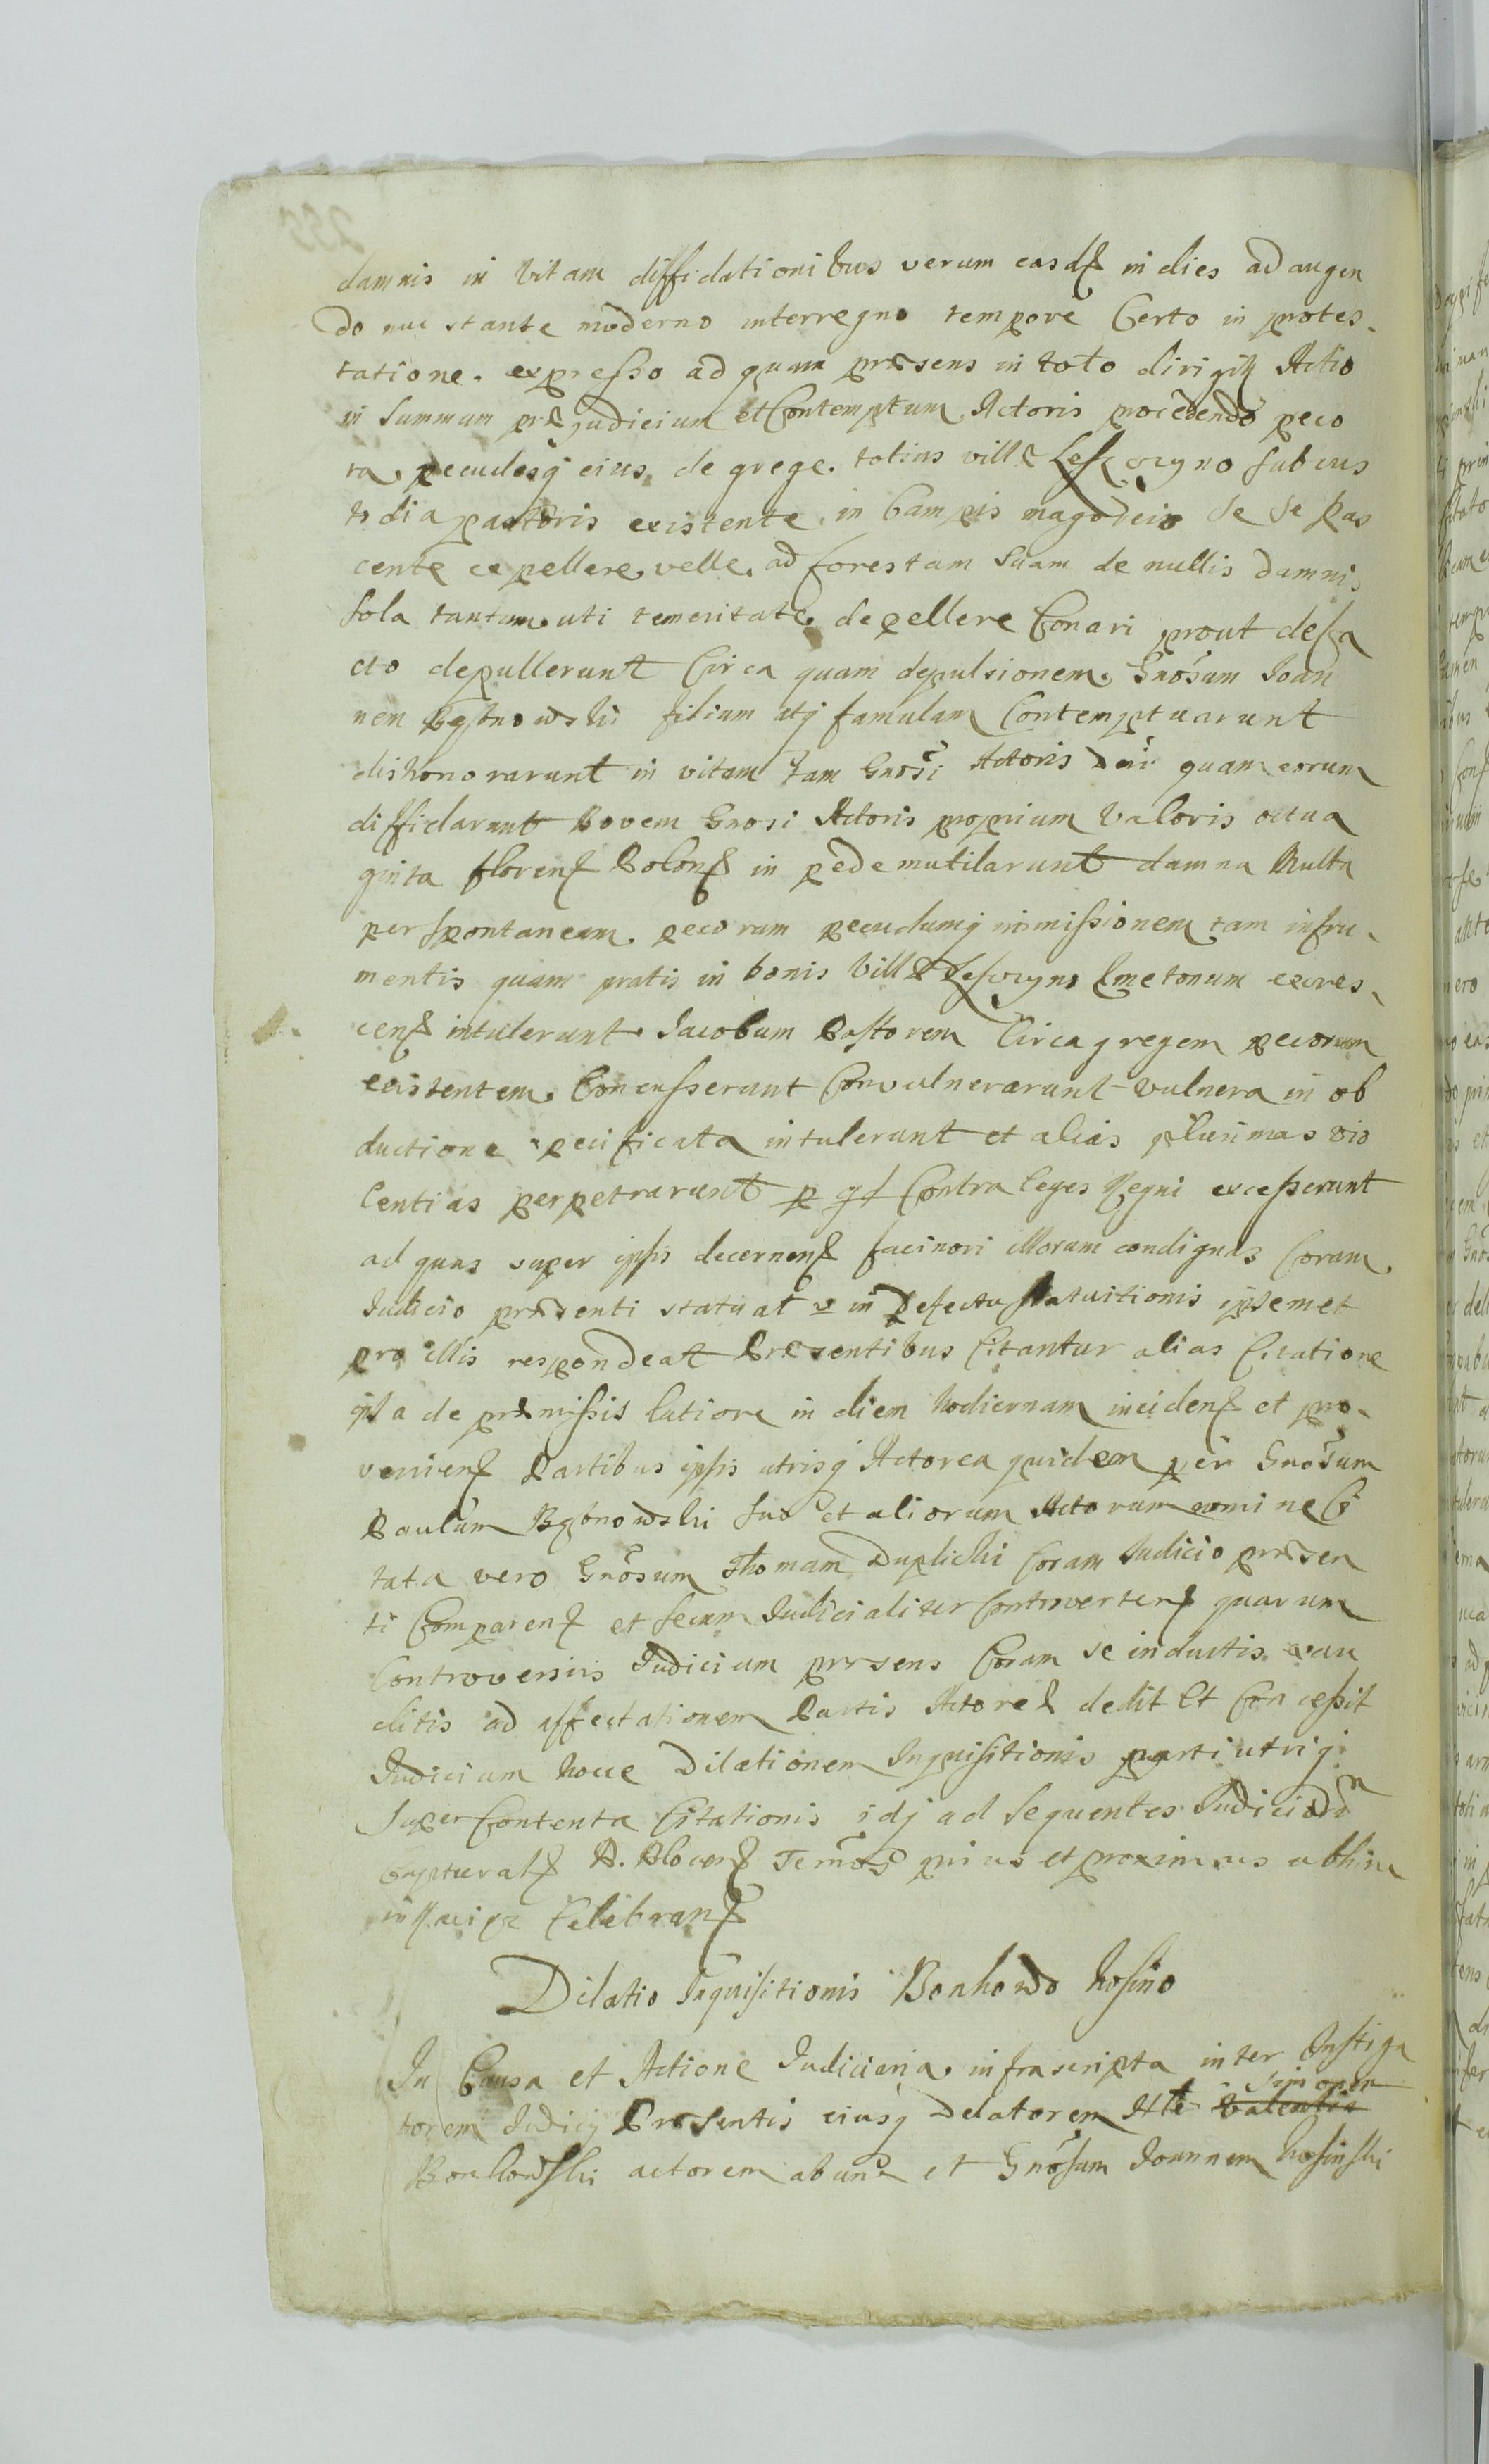 damnis in vitam diffidationibus verum easd in dies ad augen
do nuc stante moderno interregno tempore Certo in protes-
tatione expresso ad quam præsens in toto dirigit Actio
in summum præjudicium et Contemptum Actoris procedendo peco
ra pecudesq eius de grege totius villæ sub cus
todia pastoris existente in Campis se se pas
cente expellere velle ad forestam suam de nullis damnis
sola tantum uti temeritate depellere Conari prout defa
cto depullerunt Circa quam depulsionem Gnosum Joan
nem filium atq famulam Contemptuarunt
dishonorarunt in vitam tam Gnosi Actoris Dni quam eorum
diffidarunt Bovem Gnosi Actoris proprium valoris octua
ginta floren Polon in pede mutilarunt damna Multa
per spontaneam pecorum pecudumq immissionem tam in fru-
mentis quam pratis in bonis Villæ Cmetonum excres-
cen intulerunt Jacobum Pastorem Circa gregem pecorum
existentem Concusserunt Convulnerarunt vulnera in ob
ductione specificata intulerunt et alias plurimas vio
lentias perpetrarunt p q Contra leges Regni excesserunt
ad quas super ipsis decernen facinori illorum condignas Coram
Judicio præsenti statuat v in Defectu statuitionis ipsemet
pro illis respondeat Præsentibus Citantur alias Citatione
ipsa de præmissis latiore in diem hodiernam inciden et pro-
venien Partibus ipsis utrisq Actorea quidem per Gnosum
Paulum Bębnowski suo et aliorum Actorum nomine Ci
tata vero Gnosum Thomam Duplicki Coram Judicio præsen
ti Comparen et secum Judicialiter Controverten quarum
Controversiis Judicium præsens Coram se inductis exau
ditis ad affectationem Partis Actoreæ dedit Et Concessit
Judicium hocce Dilationem Inquisitionis parti utriq
super Contenta Citationis idq ad sequentes Judicior
Captural P. Plocen Termos prius et proximius abhinc
Celebran
Dilatio Inquisitionis Bonkowo Kosino
In Causa et Actione Judiciaria infrascripta inter Instiga
Simonem
torem Judicij Præsentis eiusq Delatorem Valentin
Bonkowski actorem ab una et Gnosum Joannem Kosinski